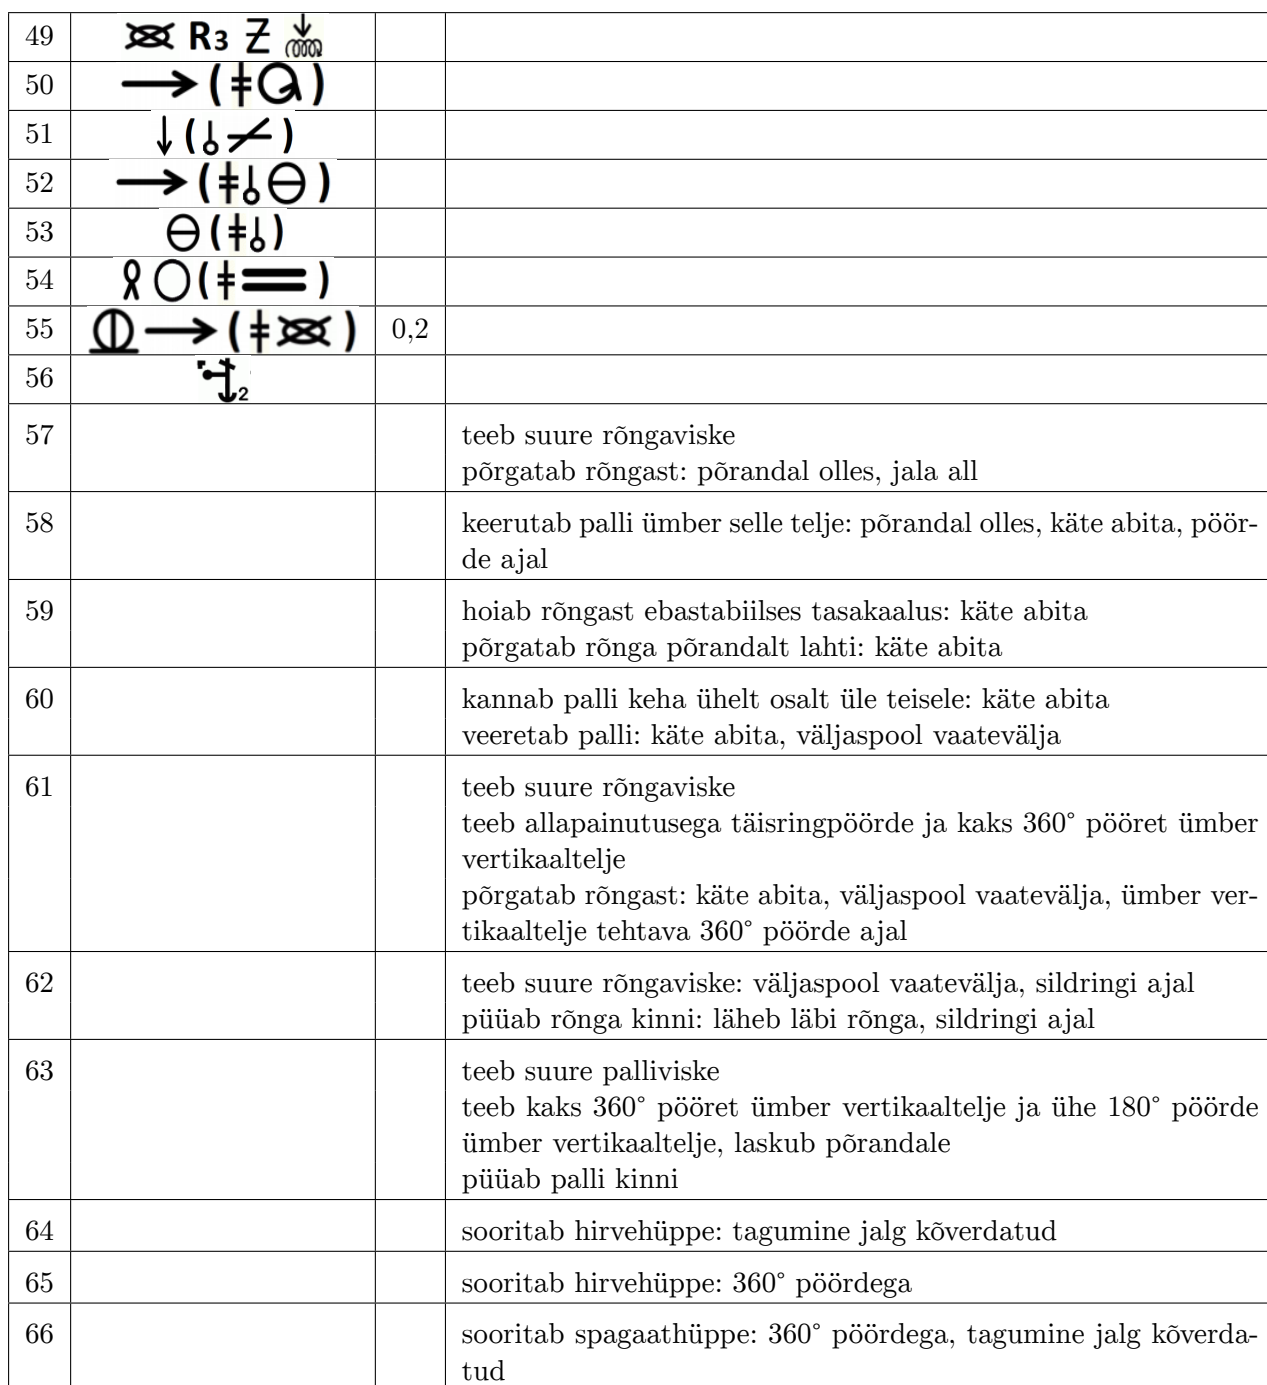 49 R3 Z
50 ( )
51 ( )
52 ( )
53 ( )
54 ( )
55 ( ) 0,2
56 2
57 teeb suure rõngaviske
põrgatab rõngast: põrandal olles, jala all
58 keerutab palli ümber selle telje: põrandal olles, käte abita, pöör-
de ajal
59 hoiab rõngast ebastabiilses tasakaalus: käte abita
põrgatab rõnga põrandalt lahti: käte abita
60 kannab palli keha ühelt osalt üle teisele: käte abita
veeretab palli: käte abita, väljaspool vaatevälja
61 teeb suure rõngaviske
teeb allapainutusega täisringpöörde ja kaks 360° pööret ümber
vertikaaltelje
põrgatab rõngast: käte abita, väljaspool vaatevälja, ümber ver-
tikaaltelje tehtava 360° pöörde ajal
62 teeb suure rõngaviske: väljaspool vaatevälja, sildringi ajal
püüab rõnga kinni: läheb läbi rõnga, sildringi ajal
63 teeb suure palliviske
teeb kaks 360° pööret ümber vertikaaltelje ja ühe 180° pöörde
ümber vertikaaltelje, laskub põrandale
püüab palli kinni
64 sooritab hirvehüppe: tagumine jalg kõverdatud
65 sooritab hirvehüppe: 360° pöördega
66 sooritab spagaathüppe: 360° pöördega, tagumine jalg kõverda-
tud